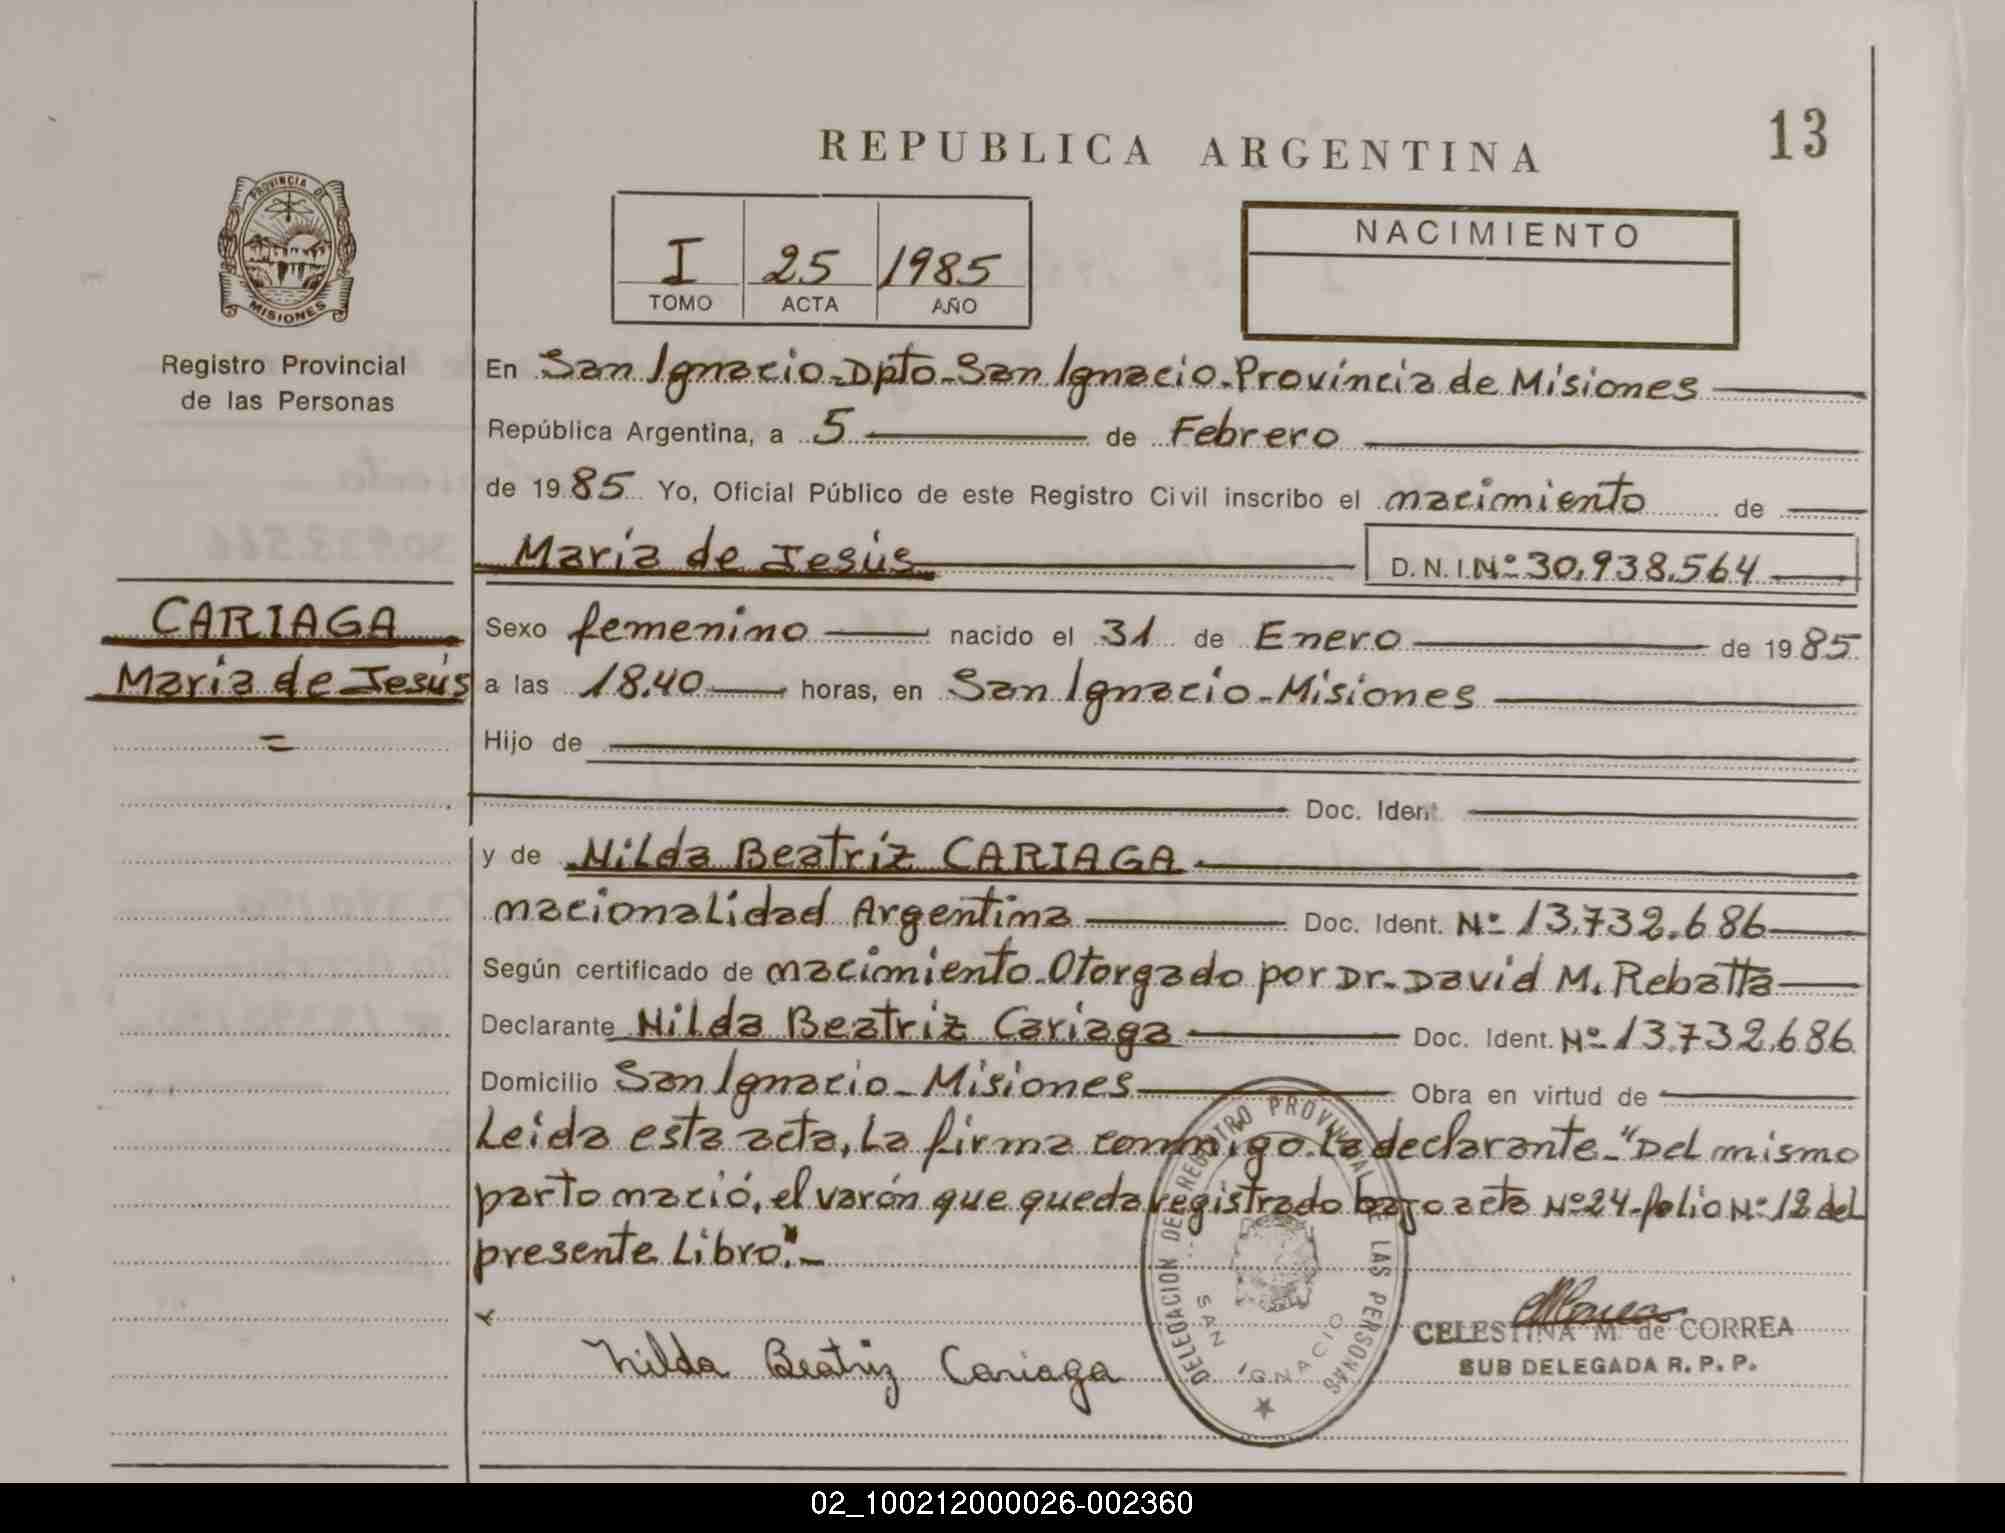 13
REPUBLICA ARGENTINA
PROVINCIA DE
MISIONES
Registro Provincial
de las Personas
I 25 1985
TOMO ACTA AÑO
NACIMIENTO
En San Ignacio-Dpto-San Ignacio-Provincia de Misiones
República Argentina, a 5 de Febrero
de 1985 Yo, Oficial Público de este Registro Civil inscribo el nacimiento de
María de Jesús D.N.I.Nº 30.938.564
CARIAGA
María de Jesús
Sexo femenino nacido el 31 de Enero de 1985
a las 18.40 horas, en San Ignacio-Misiones
Hijo de
Doc. Ident.
y de Nilda Beatríz CARIAGA
nacionalidad Argentina Doc. Ident. Nº 13.732.686
Según certificado de nacimiento Otorgado por Dr. David M. Rebatta
Declarante Nilda Beatriz Cariaga Doc. Ident. Nº 13.732.686
Domicilio San Ignacio-Misiones Obra en virtud de
Leida esta acta, La firma conmigo La declarante-"Del mismo
parto nació, el varón que queda registrado bajo acta Nº 24-folio Nº 12 del
presente Libro".-
Nilda Beatriz Cariaga
DELEGACION DEL REGISTRO PROVINCIAL DE LAS PERSONAS
SAN IGNACIO
CELESTINA M. de CORREA
SUB DELEGADA R. P. P.
02_100212000026-002360